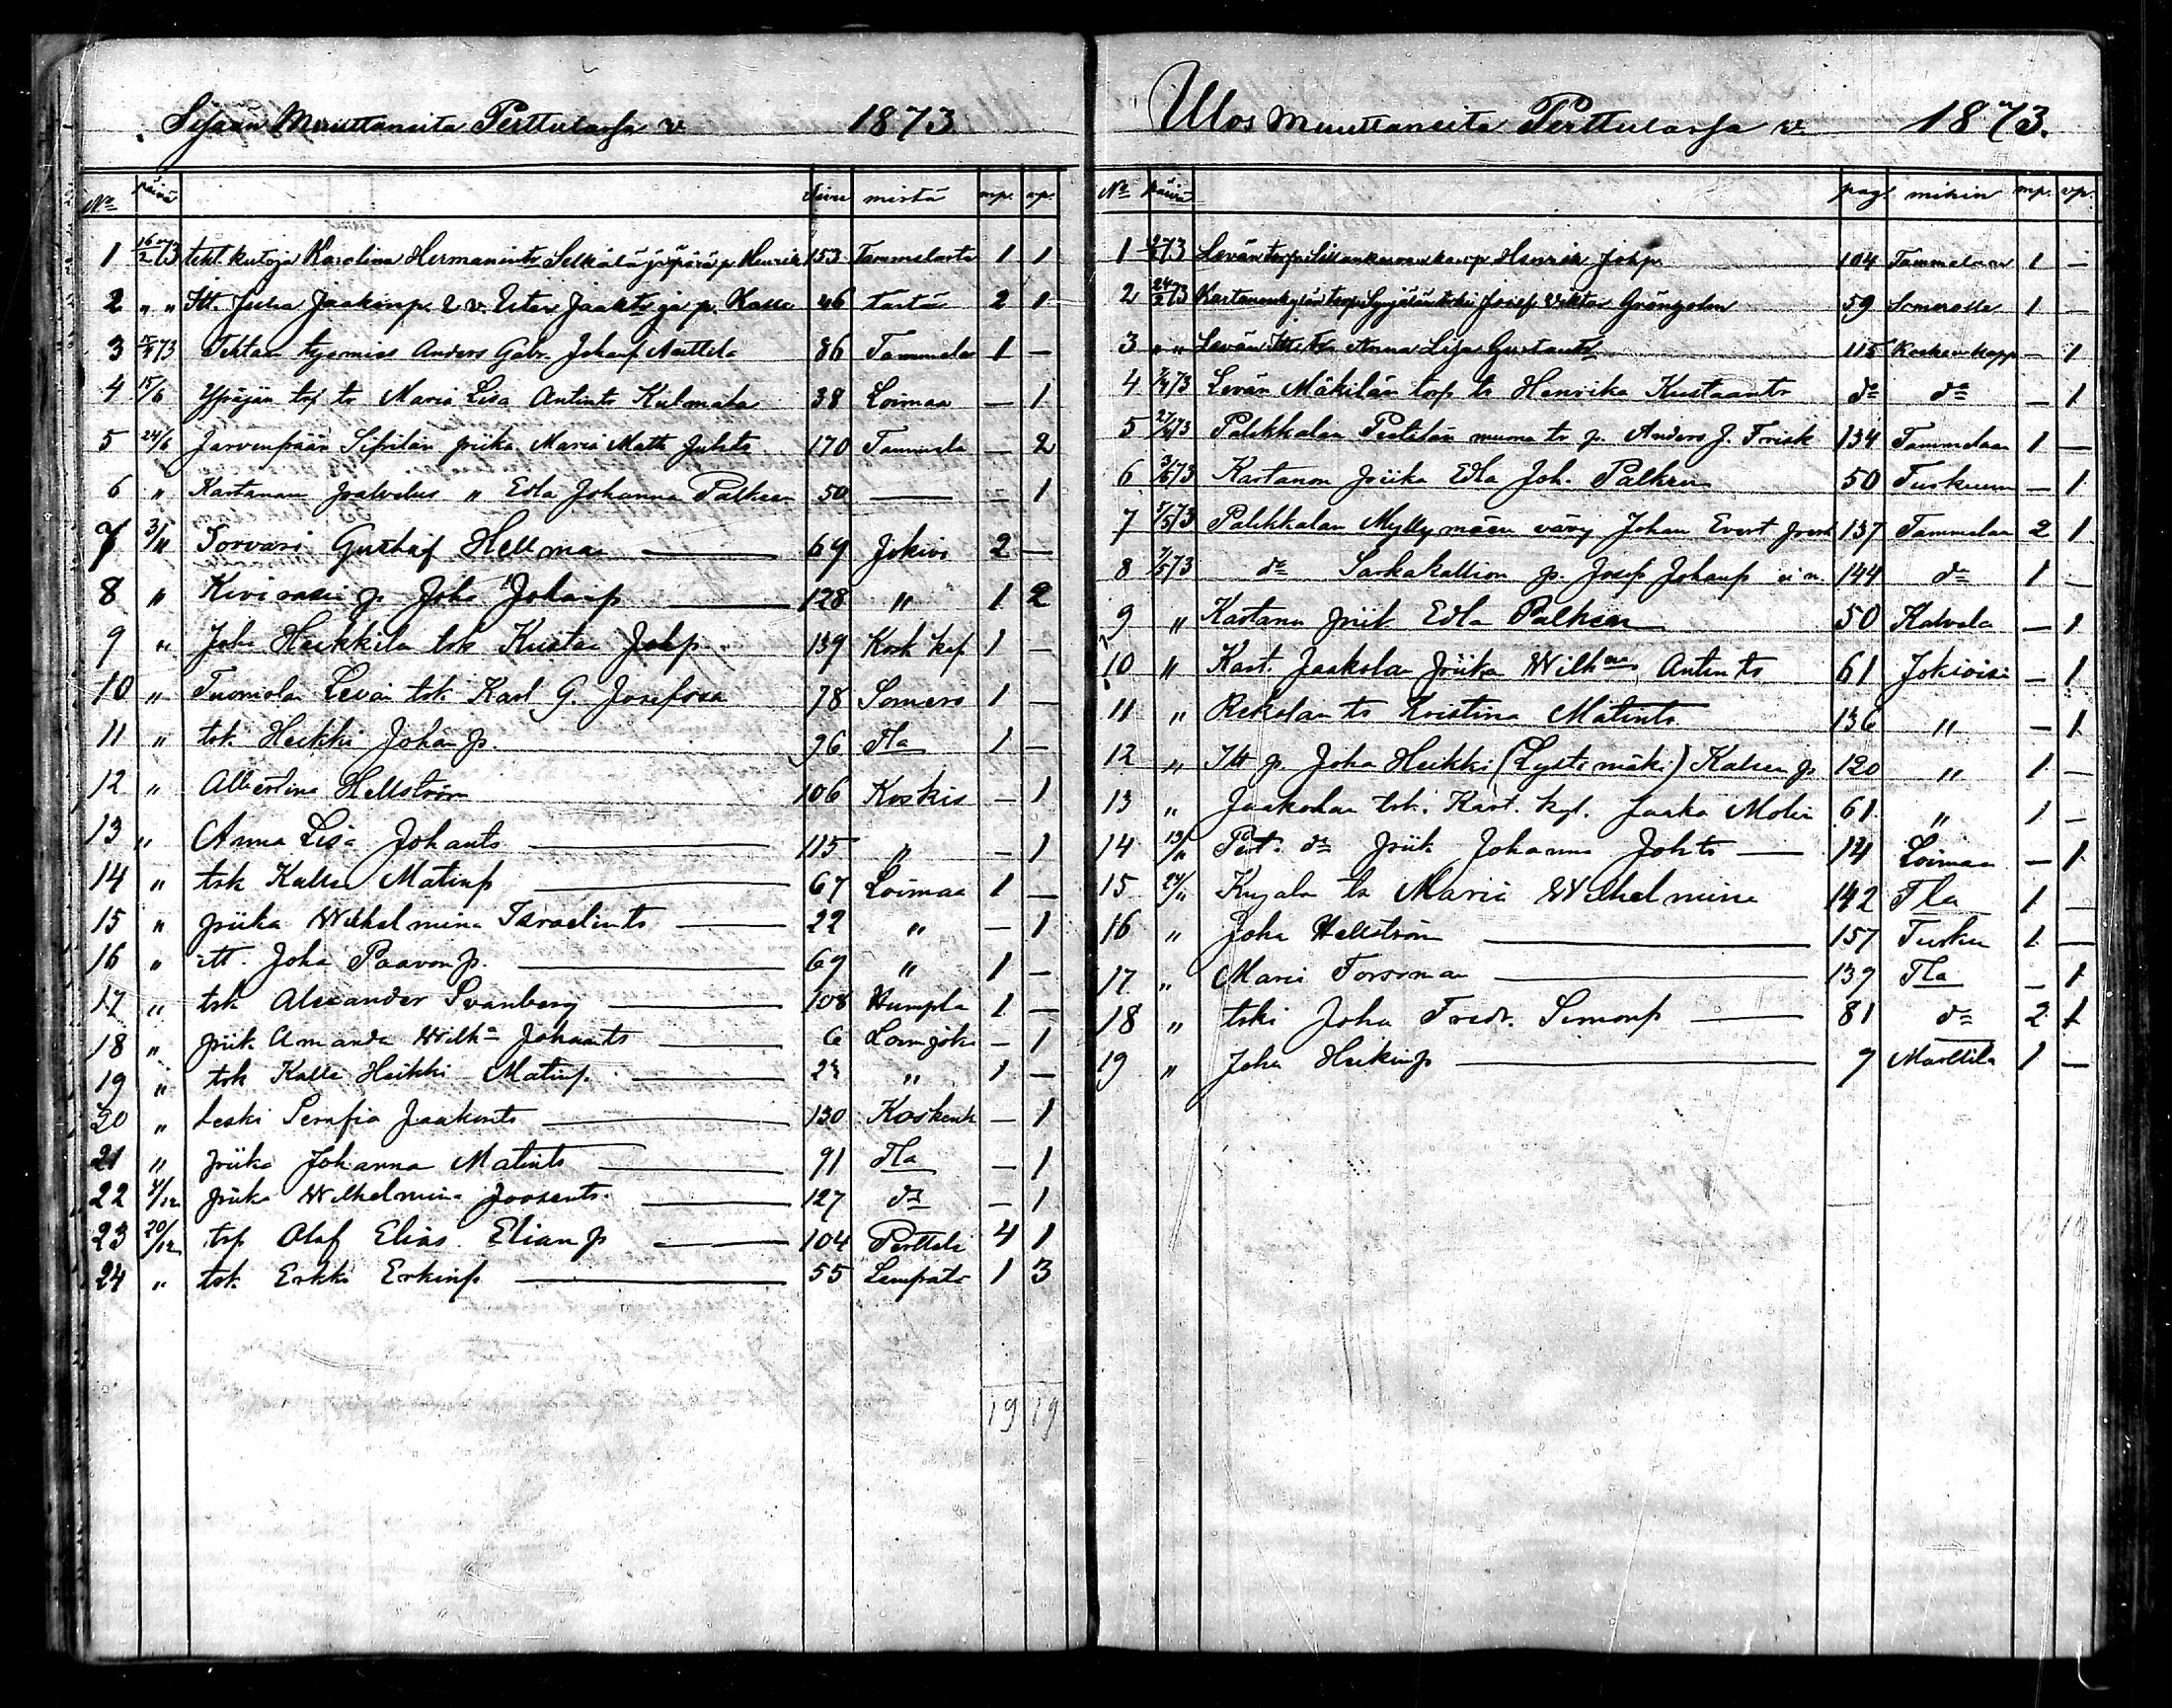 Sisään Muuttaneita Perttulassa v 1873
No päivä sivu mistä mp. vp.
1 16/2 73 teht. kutoja Karolina Hermanintr Selkälä ja poika p. Henrik 153 Tammelasta 1 1
2 " " Itt. Juha Jaakonp. 2 v. Ester Jaakts ja p. Kalle 46 tästä 2 1
3 73 Tehtan Anders Gabr. Johanp Mattila 86 Tammela 1 —
4 15/6 Ypäjän torp tr Maria Lisa Antintr Kulmala 38 Loimaa — 1
5 24/6 Jarvenpään Sipilän piika Maria Matt Juhts 170 Tammela — 2
6 " Kartanon palvelus " Edla Johanna Palkeen 50 — — 1
7 3/11 Torvari Gustaf Hellman — 64 Jokivi 2 —
8 " Kivivasi p Joha Johanp — 128 " 1 2
9 " Joha Heikkila tsk Kustaa Johp 139 Kosk kap 1 —
10 " Tuomola Levän tsk Karl G. Josefssa 78 Somero 1 —
11 " tsk. Heikki Johan p. 96 Tla 1 —
12 " Albertina Hellström 106 Koskis — 1
13 " Anna Lisa Johants — 115 " — 1
14 " tsk Kalle Matinp — 67 Loimaa 1 —
15 " piika Wilhelmina Israelints — 22 " — 1
16 " itt. Joha Paavonp. — 69 " 1 —
17 " tsk Alexander Svanberg — 108 Humpla 1 —
18 " piik Amanda Wilhna Johants — 6 Loimjoki — 1
19 " tsk Kalle Heikki Matinp. — 23 " 1 —
20 " Leski Serafia Jaakonts — 130 Koskenk — 1
21 " piika Johanna Matints — 91 Tla — 1
22 4/12 piika Wilhelmina Joosents. — 127 do — 1
23 20/12 trp Olof Elias Elian p — 104 Pertteli 4 1
24 " tsk Erkki Erkinp — 55 Lempäl 1 3
19 19
Ulos Muuttaneita Perttulassa v 1873.
No päivä pag. mihin mp. vp.
1 2/2 73 Levän torp. p Henrik Johp 104 Tammelaan 1 —
2 24/2 73 Kartanonkylän torp Josef Wiktor Grönholm 59 Somerolle 1 —
3 " " Levän Itt tr Anna Lisa Gustants 115 Kosken kapp — 1
4 73 Levän Mäkilän torp tr Henrika Kustaantr do do — 1
5 27/4 73 Palikkalan Pietilän muona tr p. Anders J. Frisk 134 Tammelaan 1 —
6 3/5 73 Kartanon Piika Edla Joh. Palkeen 50 Turkuun — 1
7 5/5 73 Palikkalan Myllymäen vävy Johan Evert 137 Tammelaan 2 1
8 7/5 73 do Sarkakallion p. Josef Johanp 144 do 1 —
9 " Kartano Piik Edla Palkeen 50 Kalvola — 1
10 " Kart. Jaakolan Piika Wilhna Antints 61 Jokioisi — 1
11 " Rekolan tr Kristina Matints. 136 " — 1
12 " Itt p. Joha Heikki (Lystimäki) Kallen p 120 " 1 —
13 " Jaakolan tsk. Kart. kyl. Jaako Molin 61 " 1 —
14 13/11 Pert. do Piik Johanna Johts — 14 Loimaa — 1
15 24/11 Kujala tr Maria Wilhelmina 142 Tla 1 —
16 " Joha Hellström — 157 Turku 1 —
17 " Maria Forssman — 139 Tla — 1
18 " tski Joha Fredr. Simonp — 81 do 2 1
19 " Joha Heikinp — 9 Marttila 1 —